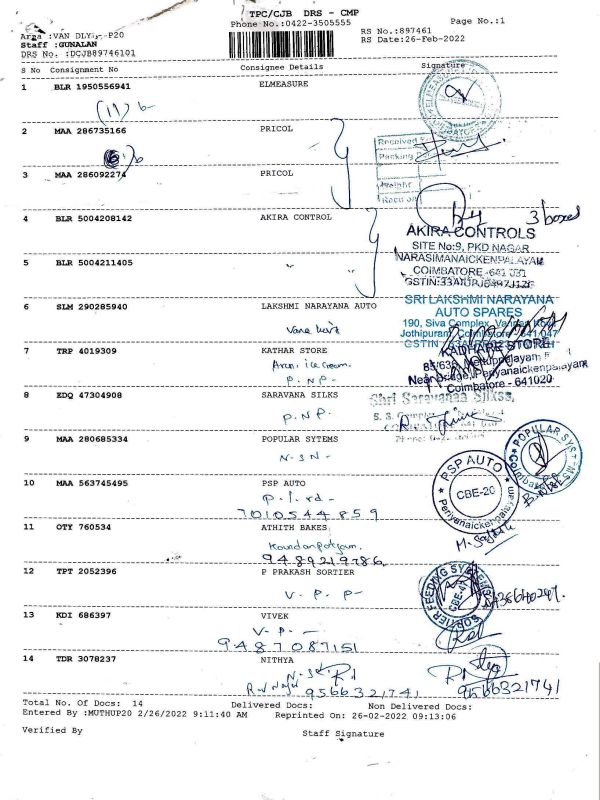 TPC/CJB DRS - CMP
Phone No.:0422-3505555
Page No.:1
Area :VAN DLY P20
Staff :GUNALAN
DRS No. :DCJB89746101
RS No.:897461
RS Date:26-Feb-2022
S No Consignment No Consignee Details Signature
1 BLR 1950556941 ELMEASURE
2 MAA 286735166 PRICOL
Received
Packing
3 MAA 286092274 PRICOL
3 boxes
4 BLR 5004208142 AKIRA CONTROL
AKIRA CONTROLS
SITE No:9, PKD NAGAR
NARASIMANAICKENPALAYAM
COIMBATORE -641 031
5 BLR 5004211405 " "
SRI LAKSHMI NARAYANA
AUTO SPARES
6 SLM 290285940 LAKSHMI NARAYANA AUTO
190, Siva Complex,
Jothipuram, Coimbatore - 641 047
7 TRP 4019309 KATHAR STORE
KADHARE STORE
Periyanaickenpalayam
Coimbatore - 641020
P.N.P.
8 EDQ 47304908 SARAVANA SILKS
Shri Saravanaa Silkss,
P.N.P.
9 MAA 280685334 POPULAR SYTEMS
POPULAR SYSTEMS
Coimbatore
N.S.N-
10 MAA 563745495 PSP AUTO
PSP AUTO
CBE-20
Periyanaickenpalayam
7010544859
11 OTY 760534 ATHITH BAKES
9489219786
12 TPT 2052396 P PRAKASH SORTIER
SORTIER FEEDING SYSTEMS
V. P. P-
13 KDI 686397 VIVEK
V. P. -
9487087151
14 TDR 3078237 NITHYA
9566321741
9566321741
Total No. Of Docs: 14 Delivered Docs: Non Delivered Docs:
Entered By :MUTHUP20 2/26/2022 9:11:40 AM Reprinted On: 26-02-2022 09:13:06
Verified By
Staff Signature